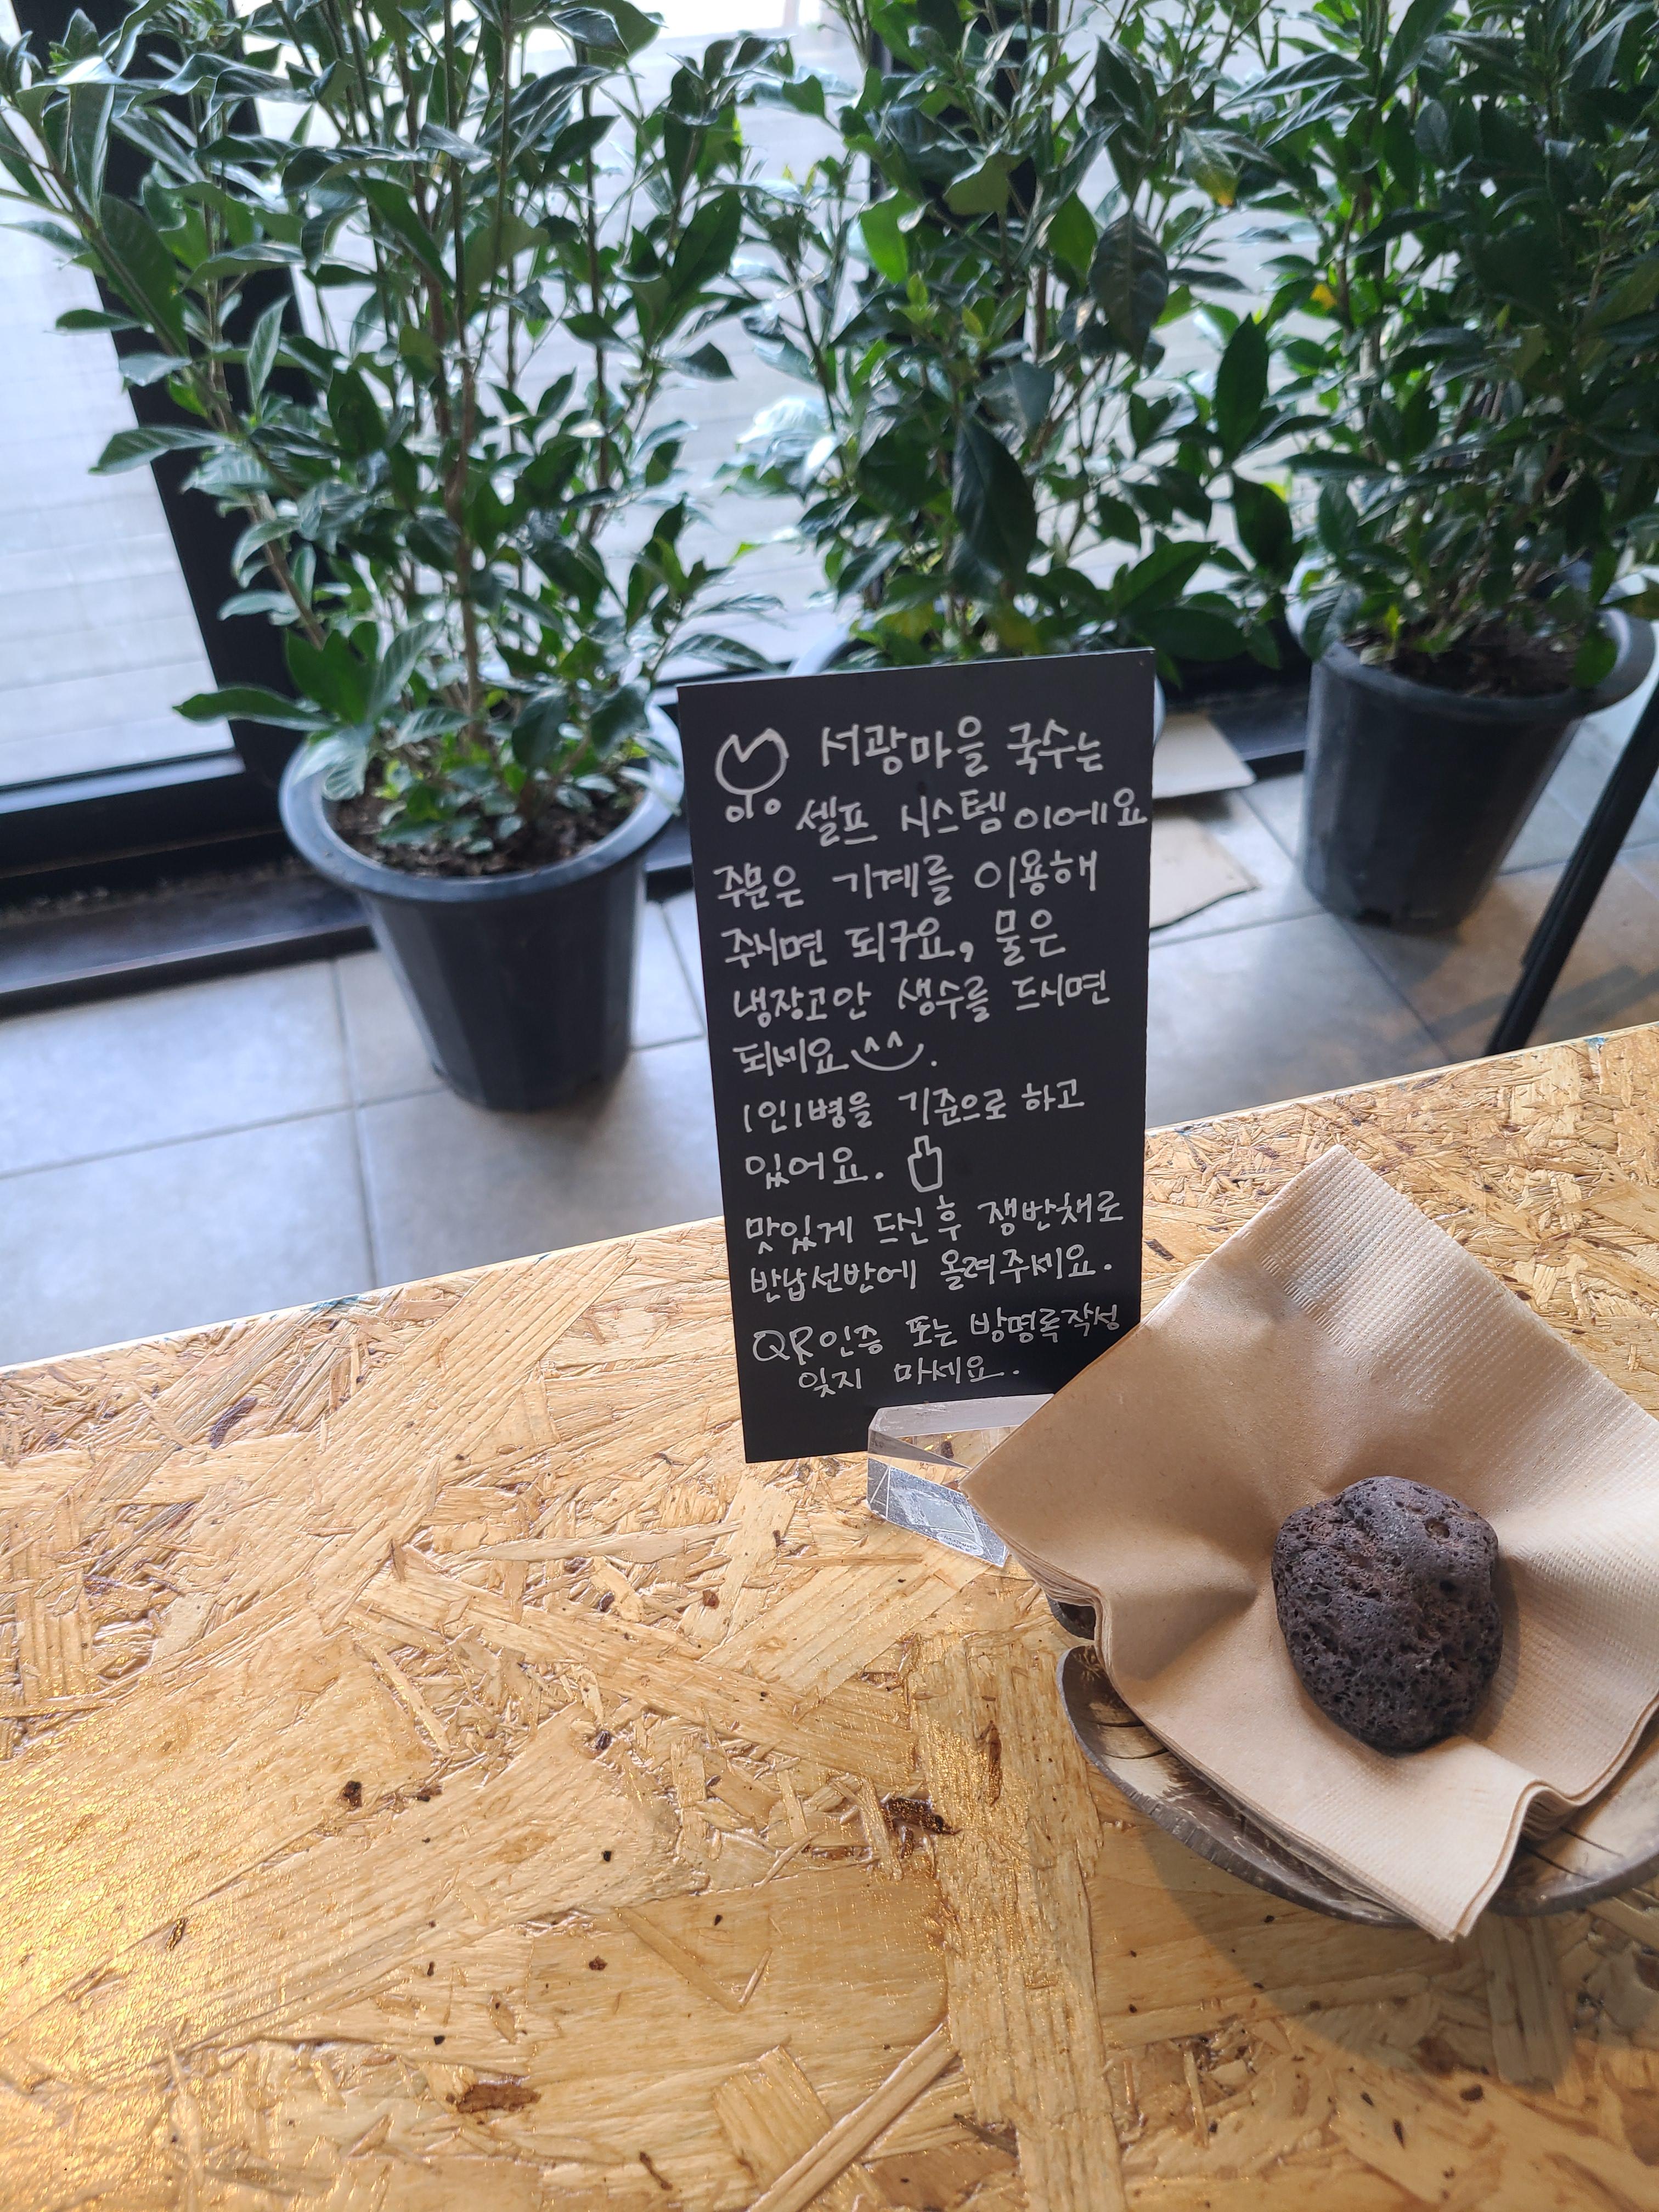 서광마을 국수는
셀프 시스템이에요
주문은 기계를 이용해
주시면 되구요, 물은
냉장고안 생수를 드시면
되세요.
1인1병을 기준으로 하고
있어요.
맛있게 드신후 쟁반채로
반납선반에 올려주세요.
QR인증 또는 방명록작성
잊지 마세요.